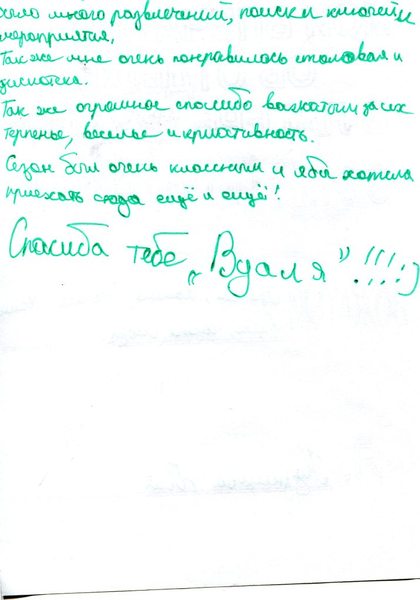 было много развлечений, поиски ключей и
мероприятия.
Так же мне очень понравилось столовая и
дискотека.
Так же огромное спосибо важатым за их
терпенье, веселье и криативность.
Сезон был очень классным и я бы хотела
приехать сюда ещё и ещё!
Спасиба тебе „Вдаля" !!!!)